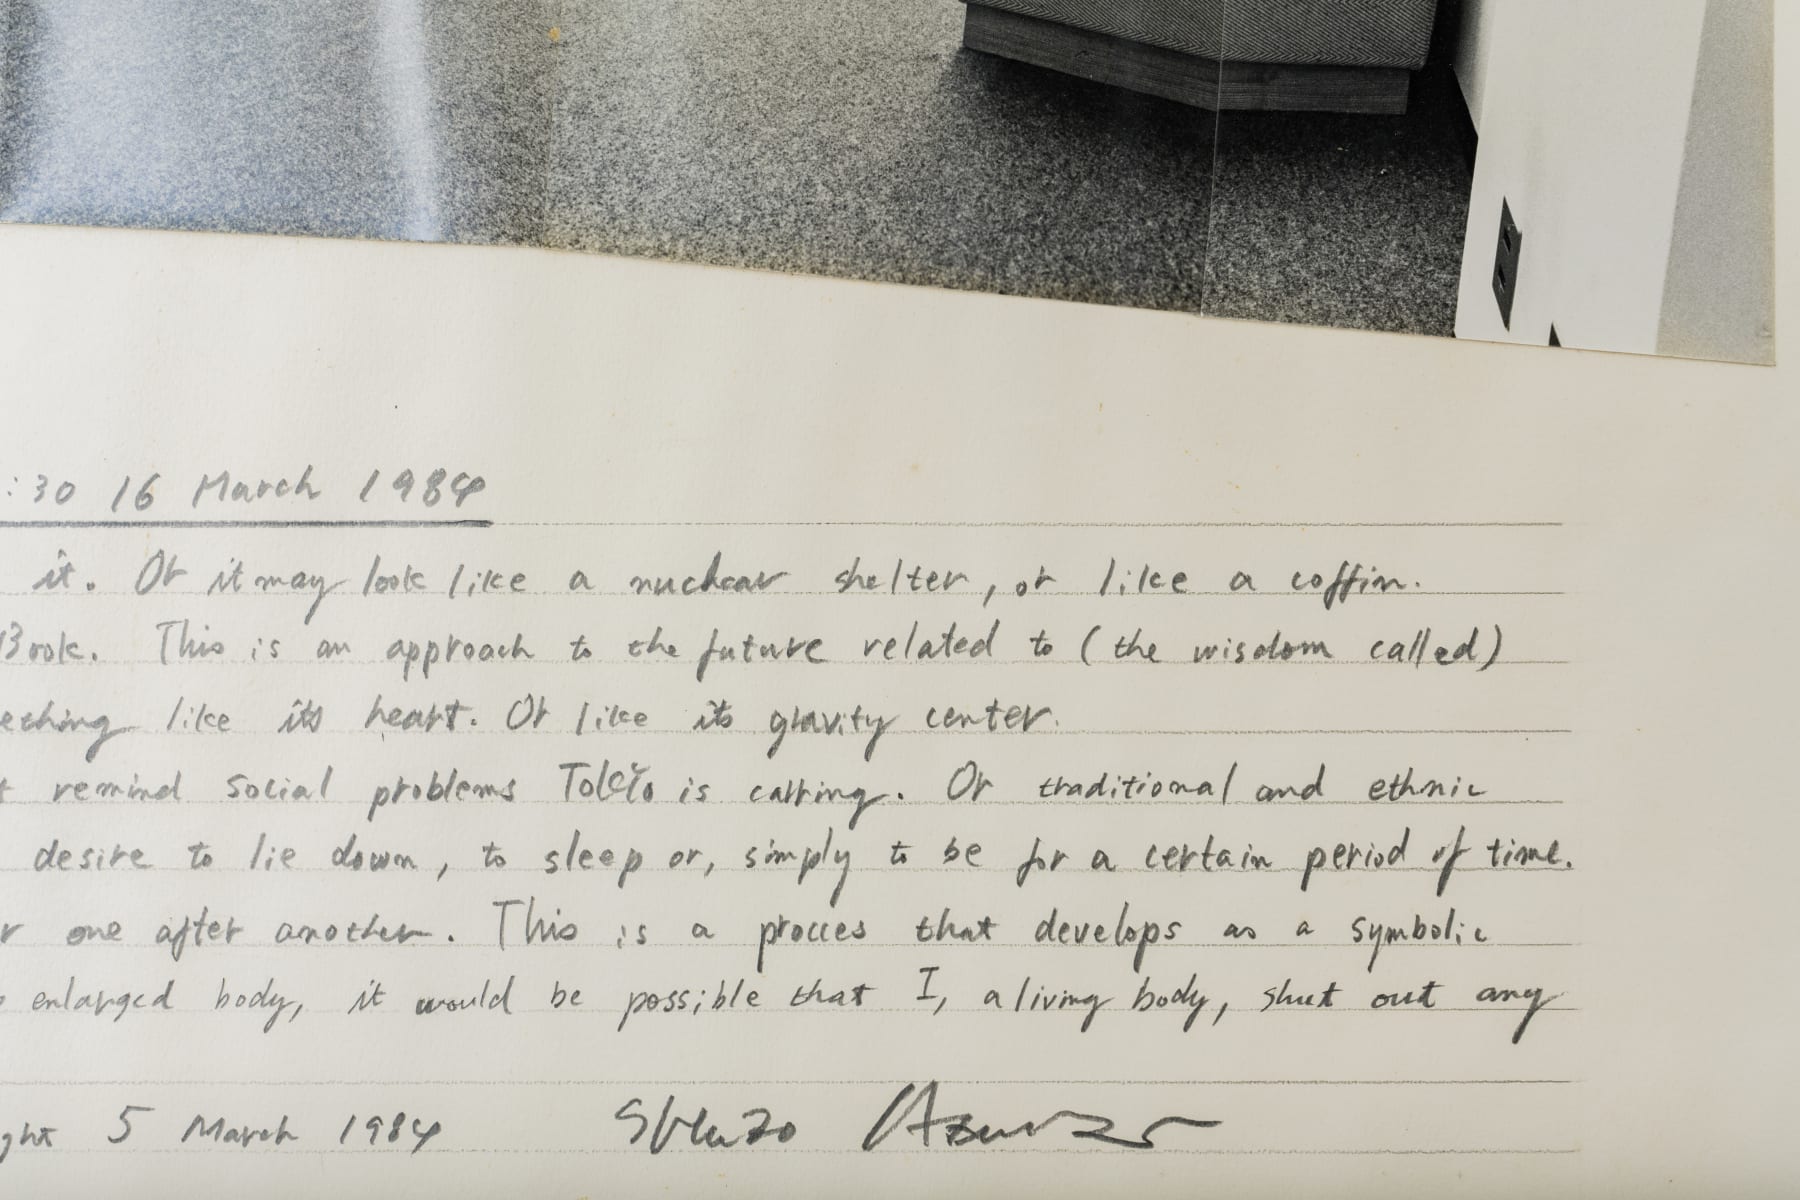 :30 16 March 1984
it. Or it may look like a nuclear shelter, or like a coffin.
Book. This is an approach to the future related to (the wisdom called)
ething like its heart. Or like its gravity center.
t remind social problems Tokyo is carring. Or traditional and ethnic
desire to lie down, to sleep or, simply to be for a certain period of time.
r one after another. This is a procces that develops as a symbolic
enlarged body, it would be possible that I, a living body, shut out any
ght 5 March 1984 Shuzo Azuchi